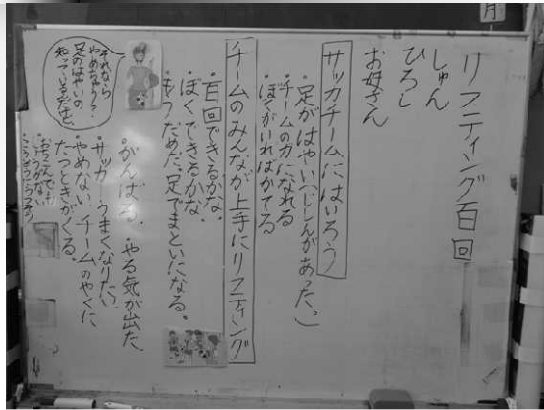 月
リフティング百回
しゅん
ひろし
お母さん
サッカチームにはいろう
・足がはやい(じしんがあった。)
・チームの力になれる
ぼくがいればかてる
チームのみんなが上手にリフティング
・百回できるかな。
ぼくできるかな
・もうだめだ。足でまといになる。
・がんばる。やる気が出た。
・サッカーうまくなりたい
・やめない チームのやくに
たつときがくる。
それなら
やめなら
足のはやいの
知っているだけど